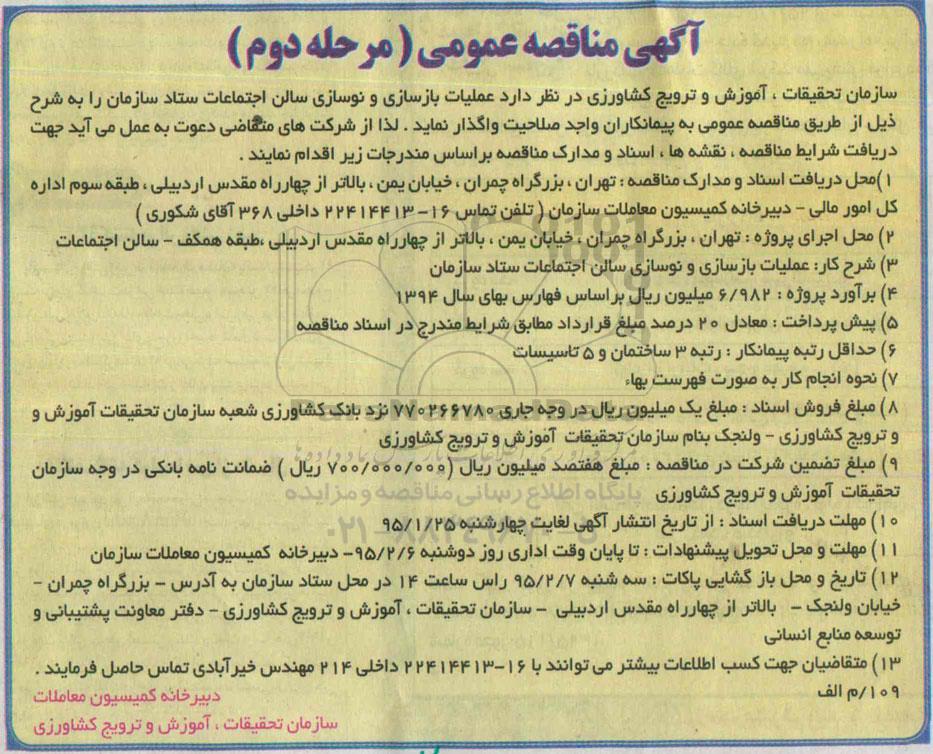 آگهی مناقصه عمومی ( مرحله دوم )
سازمان تحقیقات ، آموزش و ترویج کشاورزی در نظر دارد عملیات بازسازی و نوسازی سالن اجتماعات ستاد سازمان را به شرح
ذیل از طریق مناقصه عمومی به پیمانکاران واجد صلاحیت واگذار نماید . لذا از شرکت های متقاضی دعوت به عمل می آید جهت
دریافت شرایط مناقصه ، نقشه ها ، اسناد و مدارک مناقصه براساس مندرجات زیر اقدام نمایند .
۱)محل دریافت اسناد و مدارک مناقصه : تهران ، بزرگراه چمران ، خیابان یمن ، بالاتر از چهارراه مقدس اردبیلی ، طبقه سوم اداره
کل امور مالی – دبیرخانه کمیسیون معاملات سازمان ( تلفن تماس ۱۶- ۲۲۴۱۴۴۱۳ داخلی ۳۶۸ آقای شکوری )
۲) محل اجرای پروژه : تهران ، بزرگراه چمران ، خیابان یمن ، بالاتر از چهارراه مقدس اردبیلی ،طبقه همکف – سالن اجتماعات
۳) شرح کار: عملیات بازسازی و نوسازی سالن اجتماعات ستاد سازمان
۴) برآورد پروژه : ۶/۹۸۲ میلیون ریال براساس فهارس بهای سال ۱۳۹۴
۵) پیش پرداخت : معادل ۲۰ درصد مبلغ قرارداد مطابق شرایط مندرج در اسناد مناقصه
۶) حداقل رتبه پیمانکار : رتبه ۳ ساختمان و ۵ تاسیسات
۷) نحوه انجام کار به صورت فهرست بهاء
۸) مبلغ فروش اسناد : مبلغ یک میلیون ریال در وجه جاری ۷۷۰۲۶۶۷۸۰ نزد بانک کشاورزی شعبه سازمان تحقیقات آموزش و
و ترویج کشاورزی – ولنجک بنام سازمان تحقیقات آموزش و ترویج کشاورزی
۹) مبلغ تضمین شرکت در مناقصه : مبلغ هفتصد میلیون ریال (۷۰۰/۰۰۰/۰۰۰ ریال ) ضمانت نامه بانکی در وجه سازمان
تحقیقات آموزش و ترویج کشاورزی
پایگاه اطلاع رسانی مناقصه و مزایده
۱۰) مهلت دریافت اسناد : از تاریخ انتشار آگهی لغایت چهارشنبه ۹۵/۱/۲۵
۱۱) مهلت و محل تحویل پیشنهادات : تا پایان وقت اداری روز دوشنبه ۹۵/۲/۶- دبیرخانه کمیسیون معاملات سازمان
۱۲) تاریخ و محل باز گشایی پاکات : سه شنبه ۹۵/۲/۷ راس ساعت ۱۴ در محل ستاد سازمان به آدرس – بزرگراه چمران –
خیابان ولنجک – بالاتر از چهارراه مقدس اردبیلی – سازمان تحقیقات ، آموزش و ترویج کشاورزی – دفتر معاونت پشتیبانی و
توسعه منابع انسانی
۱۳) متقاضیان جهت کسب اطلاعات بیشتر می توانند با ۱۶-۲۲۴۱۴۴۱۳ داخلی ۲۱۴ مهندس خیرآبادی تماس حاصل فرمایند .
۱۰۹/م الف
دبیرخانه کمیسیون معاملات
سازمان تحقیقات ، آموزش و ترویج کشاورزی